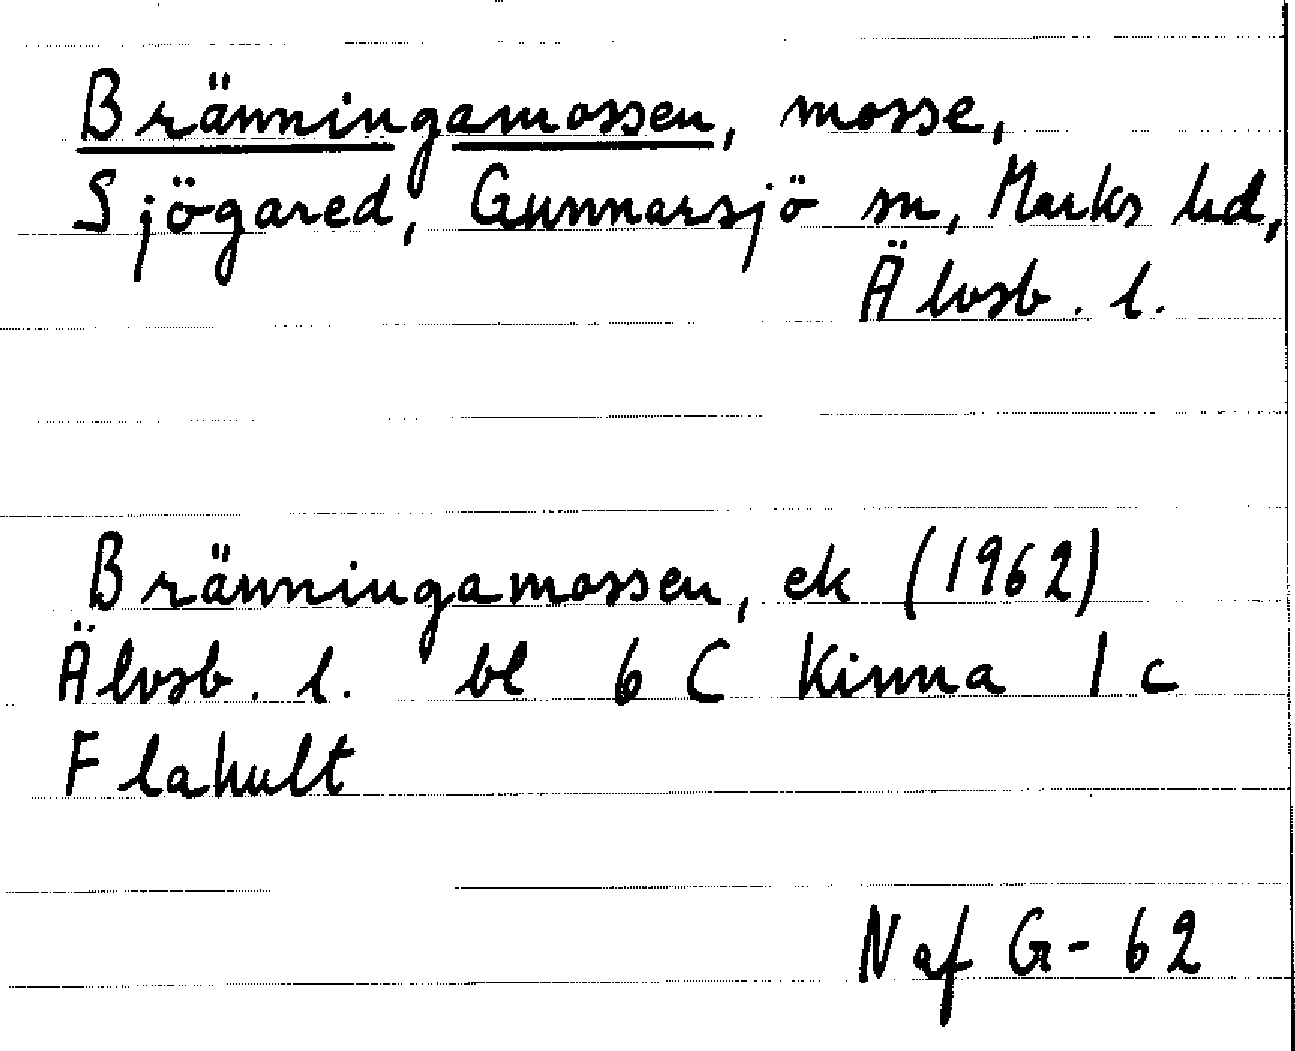 Bränningamossen, mosse,
Sjögared, Gunnarsjö sn, Marks hd,
Älvsb. l.
Bränningamossen, ek (1962)
Älvsb. l. bl 6 C Kinna 1 c
Flahult
Naf G-62